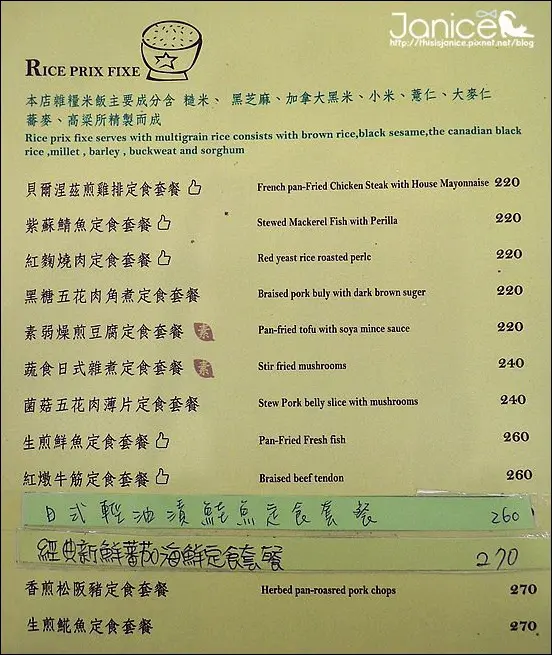 Janice
http://thisisjanice.pixnet.net/blog
RICE PRIX FIXE
本店雜糧米飯主要成分含 糙米、 黑芝麻、加拿大黑米、小米、薏仁、大麥仁
蕎麥、高粱所精製而成
Rice prix fixe serves with multigrain rice consists with brown rice,black sesame,the canadian black
rice ,millet , barley , buckweat and sorghum
貝爾涅茲煎雞排定食套餐 French pan-Fried Chicken Steak with House Mayonnaise 220
紫蘇鯖魚定食套餐 Stewed Mackerel Fish with Perilla 220
紅麴燒肉定食套餐 Red yeast rice roasted perlc 220
黑糖五花肉角煮定食套餐 Braised pork buly with dark brown suger 220
素弱燥煎豆腐定食套餐 素 Pan-fried tofu with soya mince sauce 220
蔬食日式雜煮定食套餐 素 Stir fried mushrooms 240
菌菇五花肉薄片定食套餐 Stew Pork belly slice with mushrooms 240
生煎鮮魚定食套餐 Pan-Fried Fresh fish 260
紅燉牛筋定食套餐 Braised beef tendon 260
日式輕油漬鮭魚定食套餐 260
經典新鮮蕃茄海鮮定食套餐 270
香煎松阪豬定食套餐 Herbed pan-roasred pork chops 270
生煎鯰魚定食套餐 270